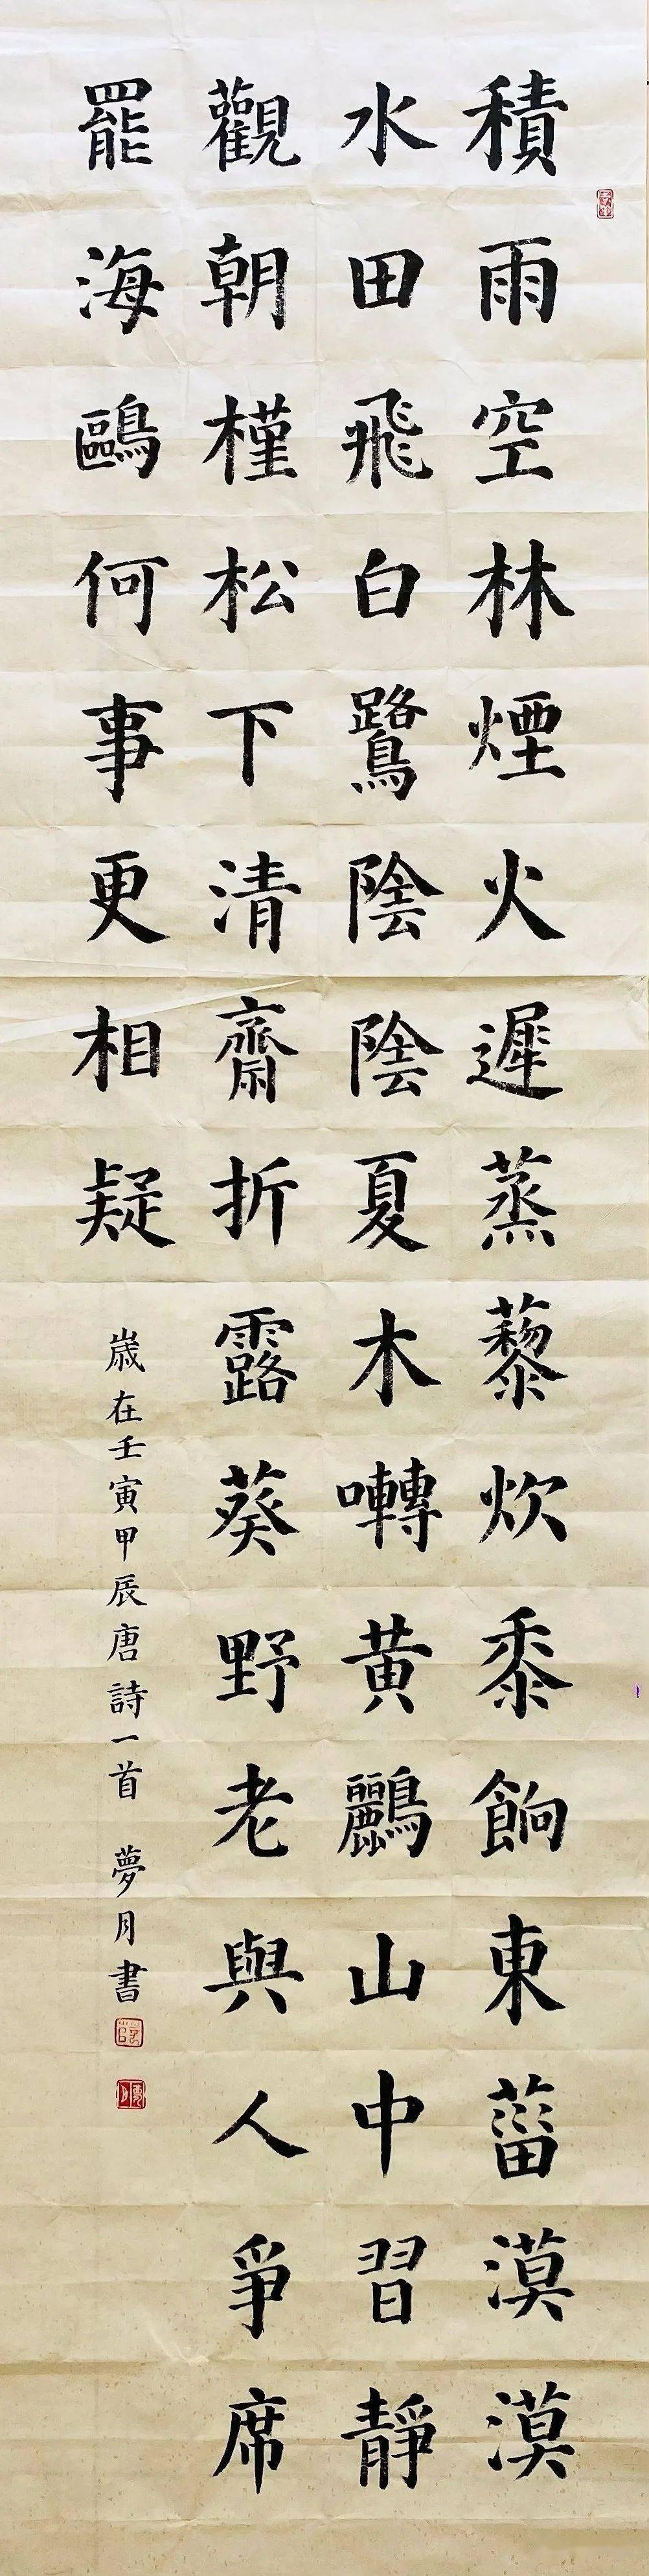 積雨空林煙火遲蒸藜炊黍餉東菑漠漠
水田飛白鷺陰陰夏木囀黃鸝山中習靜
觀朝槿松下清齋折露葵野老與人爭席
罷海鷗何事更相疑
歲在壬寅甲辰唐詩一首 夢月書